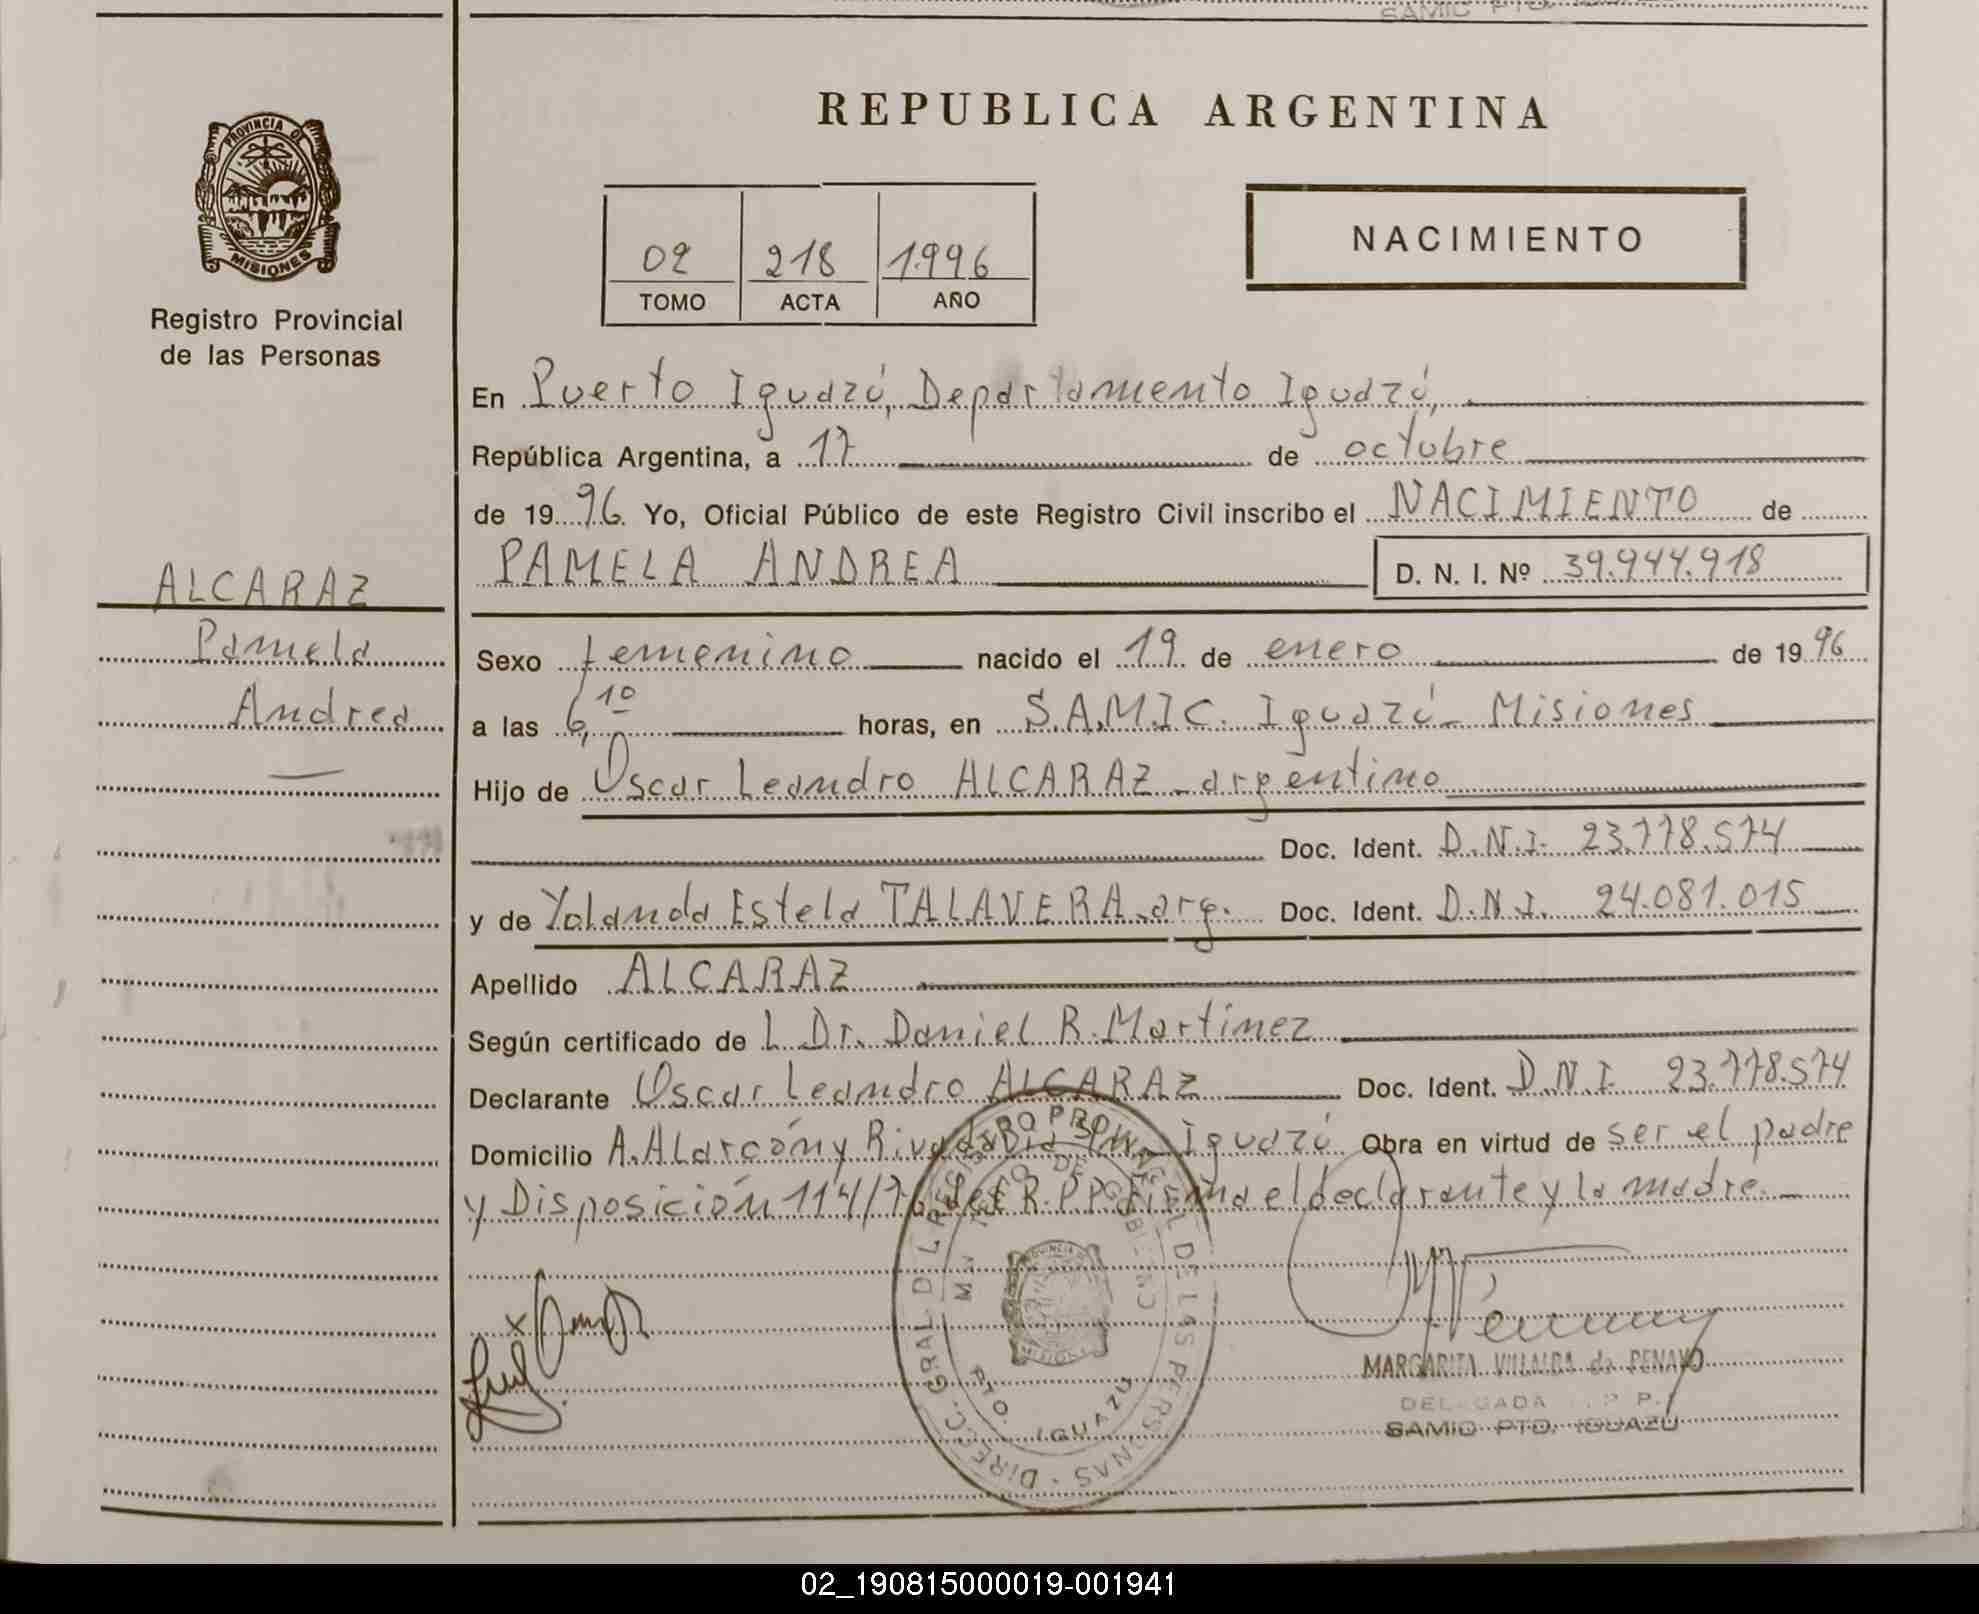 SAMIC PTO.
PROVINCIA DE
MISIONES
Registro Provincial
de las Personas
REPUBLICA ARGENTINA
02 218 1996
TOMO ACTA AÑO
NACIMIENTO
En Puerto Iguazú, Departamento Iguazú,
República Argentina, a 17 de octubre
de 1996. Yo, Oficial Público de este Registro Civil inscribo el NACIMIENTO de
PAMELA ANDREA D. N. I. Nº 39.944.918
ALCARAZ
Pamela
Andrea
Sexo femenino nacido el 19 de enero de 1996
a las 6,10 horas, en S.A.M.I.C. Iguazú - Misiones
Hijo de Oscar Leandro ALCARAZ - argentino
Doc. Ident. D.N.I. 23.778.574
y de Yolanda Estela TALAVERA - arg. Doc. Ident. D.N.I. 24.081.015
Apellido ALCARAZ
Según certificado de L Dr. Daniel R. Martinez
Declarante Oscar Leandro ALCARAZ Doc. Ident. D.N.I. 23.778.574
Domicilio A. Alarcón y Rivadavia Iguazú Obra en virtud de ser el padre
y Disposición 114/76 del R.P.P. Firma el declarante y la madre. -
DIREC. GRAL DEL REGISTRO PROVINCIAL DE LAS PERSONAS
DE GOBIERNO
PTO. IGUAZU
PROVINCIA DE
MISIONES
MARGARITA VILLALBA de PENAYO
DELEGADA P. P.
SAMIC PTO. IGUAZU
02_190815000019-001941